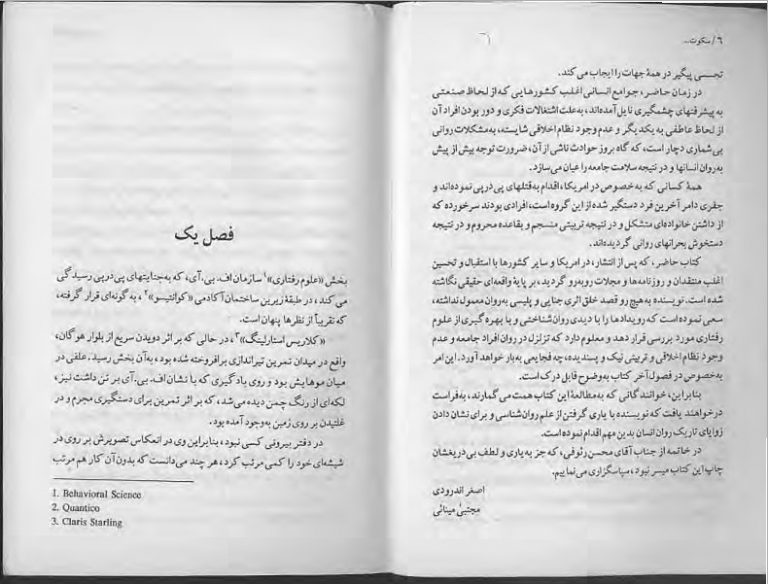 ۶ / سکوت...
تجسسی پیگیر در همهٔ جهات را ایجاب می کند.
در زمان حاضر، جوامع انسانی اغلب کشورهایی که از لحاظ صنعتی
به پیشرفتهای چشمگیری نایل آمده‌اند، به‌علت اشتغالات فکری و دور بودن افراد آن
از لحاظ عاطفی به یکدیگر و عدم وجود نظام اخلاقی شایسته، به‌مشکلات روانی
بی‌شماری دچار است، که گاه بروز حوادث ناشی از آن، ضرورت توجه بیش از پیش
به‌روان انسانها و در نتیجه سلامت جامعه را عیان می‌سازد.
همهٔ کسانی که به‌خصوص در امریکا، اقدام به‌قتلهای پی‌در‌پی نموده‌اند و
جفری دامر آخرین فرد دستگیر شده از این گروه است، افرادی بودند سرخورده که
از داشتن خانواده‌ای متشکل و در نتیجه تربیتی منسجم و بقاعده محروم و در نتیجه
دستخوش بحرانهای روانی گردیده‌اند.
کتاب حاضر، که پس از انتشار، در امریکا و سایر کشورها با استقبال و تحسین
اغلب منتقدان و روزنامه‌ها و مجلات روبه‌رو گردید، بر پایهٔ واقعه‌ای حقیقی نگاشته
شده است. نویسنده به‌هیچ‌رو قصد خلق اثری جنایی و پلیسی به‌روان معمول نداشته،
سعی نموده است که رویدادها را با دیدی روان‌شناختی و با بهره گیری از علوم
رفتاری مورد بررسی قرار دهد و معلوم دارد که تزلزل در روان افراد جامعه و عدم
وجود نظام اخلاقی و تربیتی نیک و پسندیده، چه فجایعی به‌بار خواهد آورد. این امر
به‌خصوص در فصول آخر کتاب به‌وضوح قابل درک است.
بنابراین، خوانندگانی که به‌مطالعهٔ این کتاب همت می گمارند، به‌فراست
درخواهند یافت که نویسنده با یاری گرفتن از علم روان‌شناسی و برای نشان دادن
زوایای تاریک روان انسان بدین مهم اقدام نموده است.
در خاتمه از جناب آقای محسن رئوفی، که جز به یاری و لطف بی‌دریغشان
چاپ این کتاب میسر نبود، سپاسگزاری می‌نماییم.
اصغر اندرودی
مجتبیٰ مینائی
فصل یک
بخش «علوم رفتاری»۱ سازمان اف. بی. آی، که به‌جنایتهای پی‌در‌پی رسیدگی
می کند، در طبقهٔ زیرین ساختمان آکادمی «کوانتیسو»۲، به گونه‌ای قرار گرفته،
که تقریباً از نظرها پنهان است.
«کلاریس استارلینگ»۳، در حالی که بر اثر دویدن سریع از بلوار هوگان،
واقع در میدان تمرین تیراندازی برافروخته شده بود، به‌آن بخش رسید. علفی در
میان موهایش بود و روی بادگیری که با نشان اف. بی. آی بر تن داشت نیز،
لکه‌ای از رنگ چمن دیده می‌شد، که بر اثر تمرین برای دستگیری مجرم و در
غلتیدن بر روی زمین به‌وجود آمده بود.
در دفتر بیرونی کسی نبود، بنابراین وی در انعکاس تصویرش بر روی در
شیشه‌ای خود را کمی مرتب کرد، هر چند می‌دانست که بدون آن کار هم مرتب
1. Behavioral Science
2. Quantico
3. Claris Starling